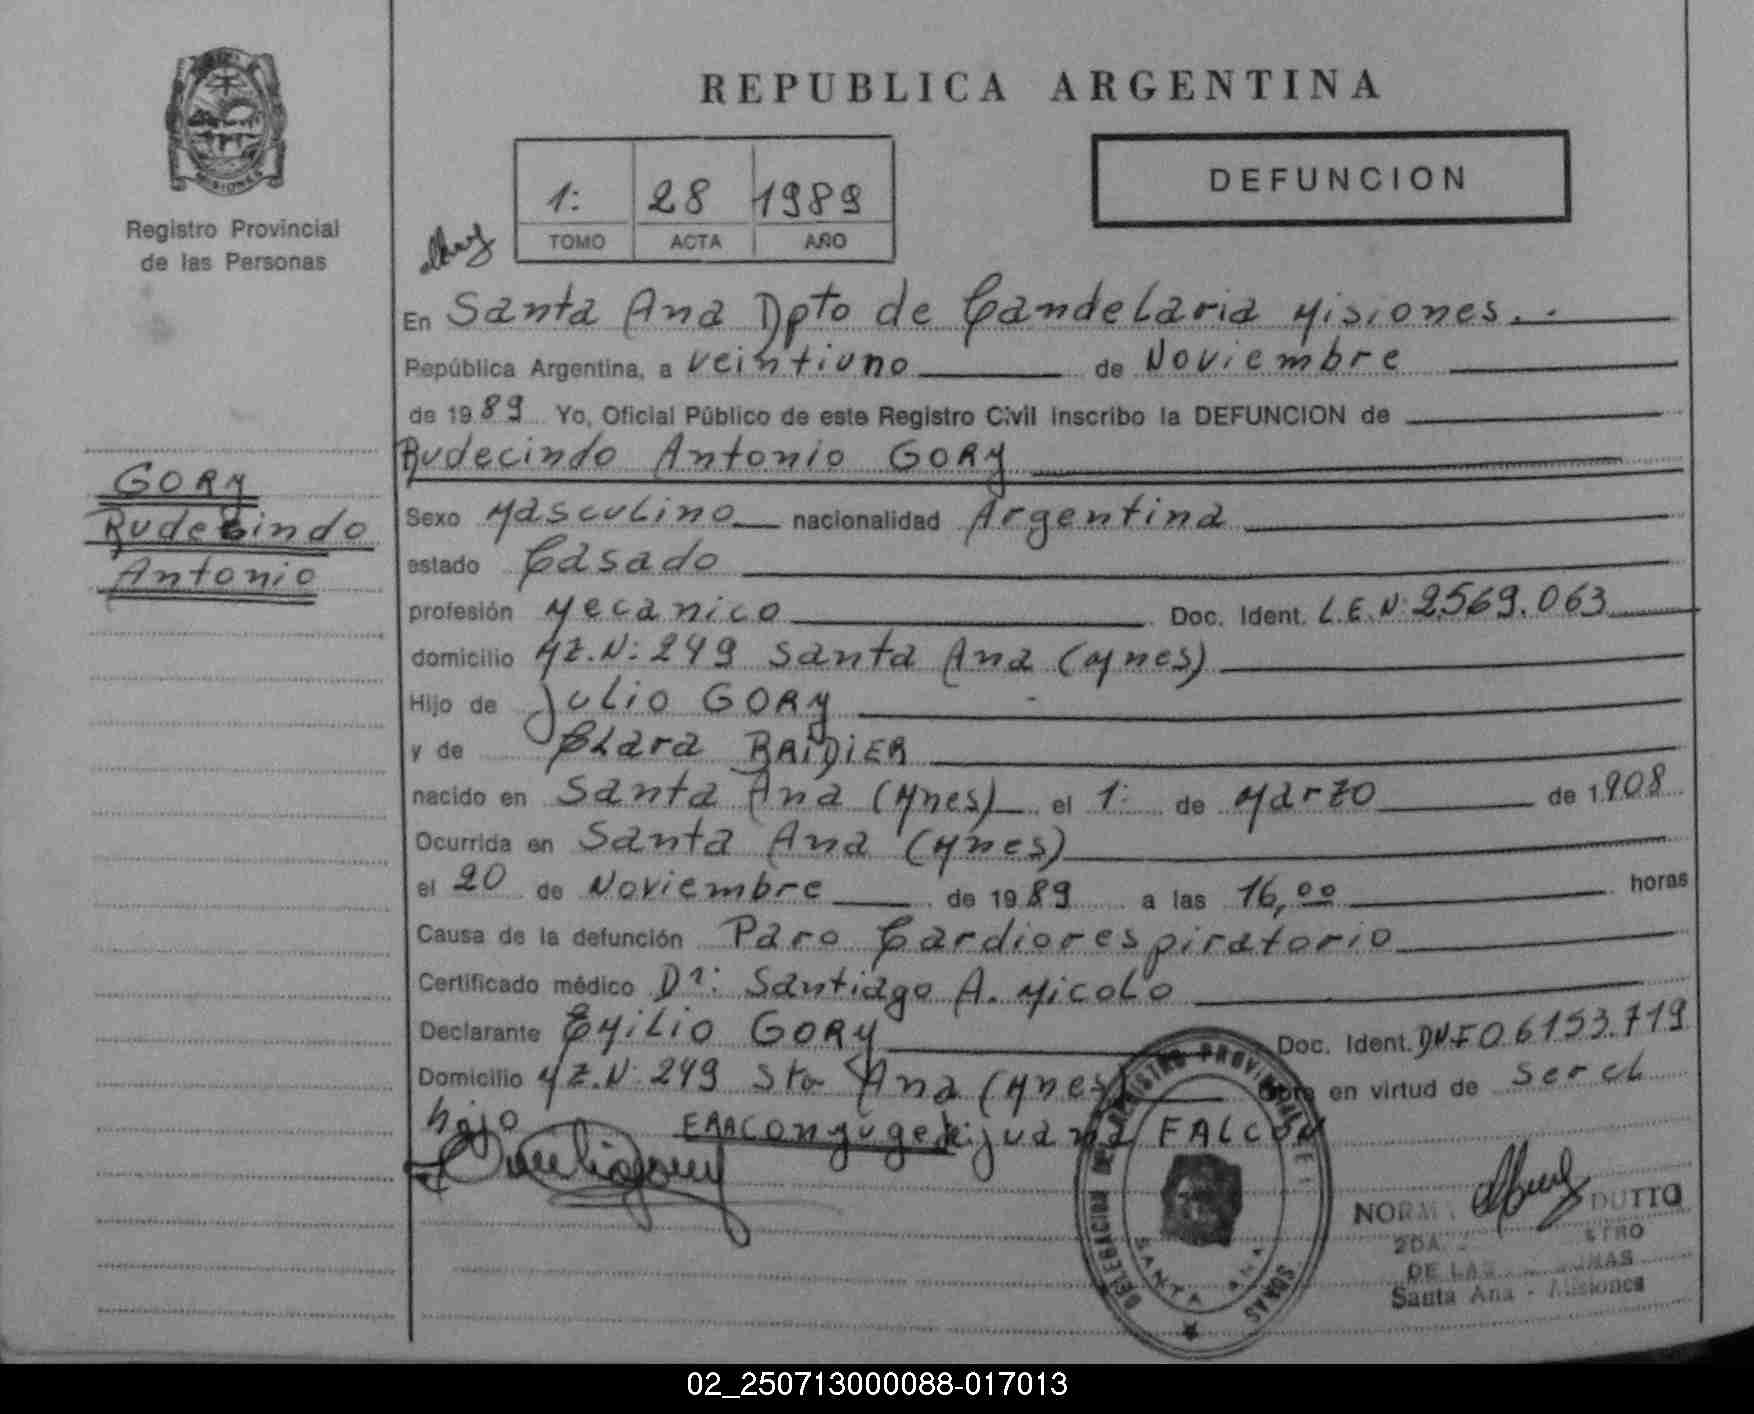 REPUBLICA ARGENTINA
MISIONES
Registro Provincial
de las Personas
1: 28 1989
TOMO ACTA AÑO
DEFUNCION
En Santa Ana Dpto de Candelaria Misiones..
República Argentina, a veintiuno de Noviembre
de 1989 Yo, Oficial Público de este Registro Civil inscribo la DEFUNCION de
Rudecindo Antonio GORY
GORY
Rudecindo
Antonio
Sexo Masculino nacionalidad Argentina
estado Casado
profesión Mecanico Doc. Ident. L.E.N: 2.569.063
domicilio MZ.N: 249 Santa Ana (Mnes)
Hijo de Julio GORY
y de Clara BRIDIER
nacido en Santa Ana (Mnes) el 1: de Marzo de 1908
Ocurrida en Santa Ana (Mnes)
el 20 de Noviembre de 1989 a las 16,00 horas
Causa de la defunción Paro Cardiorespiratorio
Certificado médico Dr: Santiago A. Micolo
Declarante Emilio GORY Doc. Ident. DNI 06153.719
Domicilio MZ.N: 249 Sta Ana (Mnes) Obra en virtud de ser el
hijo ERA Conyuge de: Juana FALCON
DELEGACION DEL REGISTRO PROVINCIAL DE
SANTA ANA
NORM DUTTO
2DA. STRO
DE LAS ONAS
Santa Ana - Misiones
02_250713000088-017013